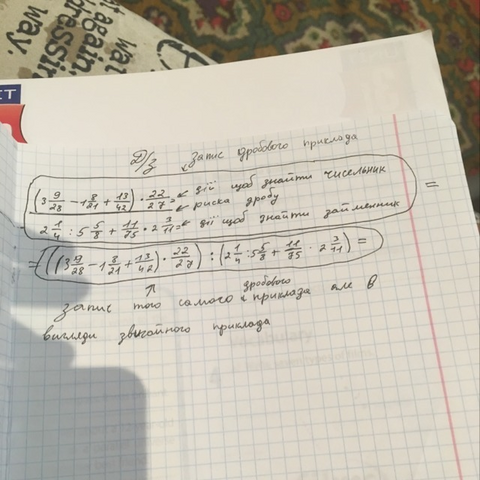 again.
way.
Д/З запис дробового приклада
(3 9/28 - 1 8/21 + 13/42) · 22/27 = ← дії щоб знайти чисельник
← риска дробу =
2 1/4 : 5 5/8 + 11/75 · 2 3/11 = ← дії щоб знайти займенник
= ((3 9/28 - 1 8/21 + 13/42) · 22/27) : (2 1/4 : 5 5/8 + 11/75 · 2 3/11) =
запис того самого дробового приклада але в
вигляди звичайного приклада